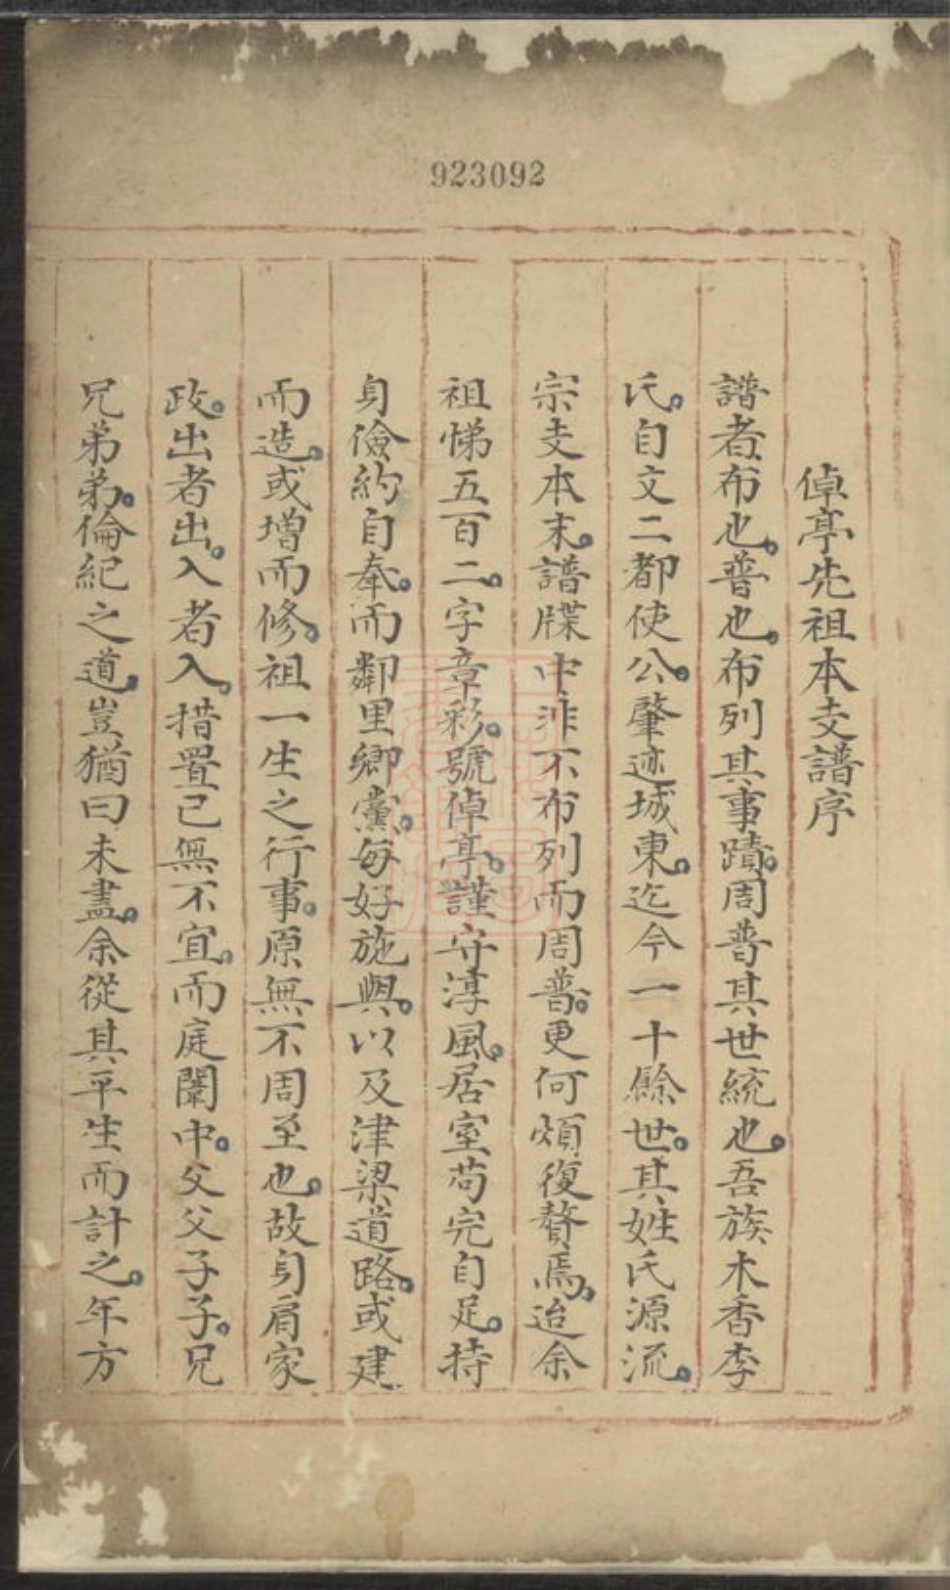 923092
倬亭先祖本支譜序
譜者布也普也布列其事蹟周普其世統也吾族木香李
氏自文二都使公肇迹城東迄今一十餘世其姓氏源流
宗支本末譜牒中非不布列而周普更何煩復贅焉迨余
祖悌五百二字章彩號倬亭謹守淳風居室苟完自足持
身儉約自奉而鄰里鄉黨每好施與以及津梁道路或建
而造或增而修祖一生之行事原無不周至也故身肩家
政出者出入者入措置已無不宜而庭闈中父父子子兄
兄弟弟倫紀之道豈猶曰未盡余從其平生而計之年方